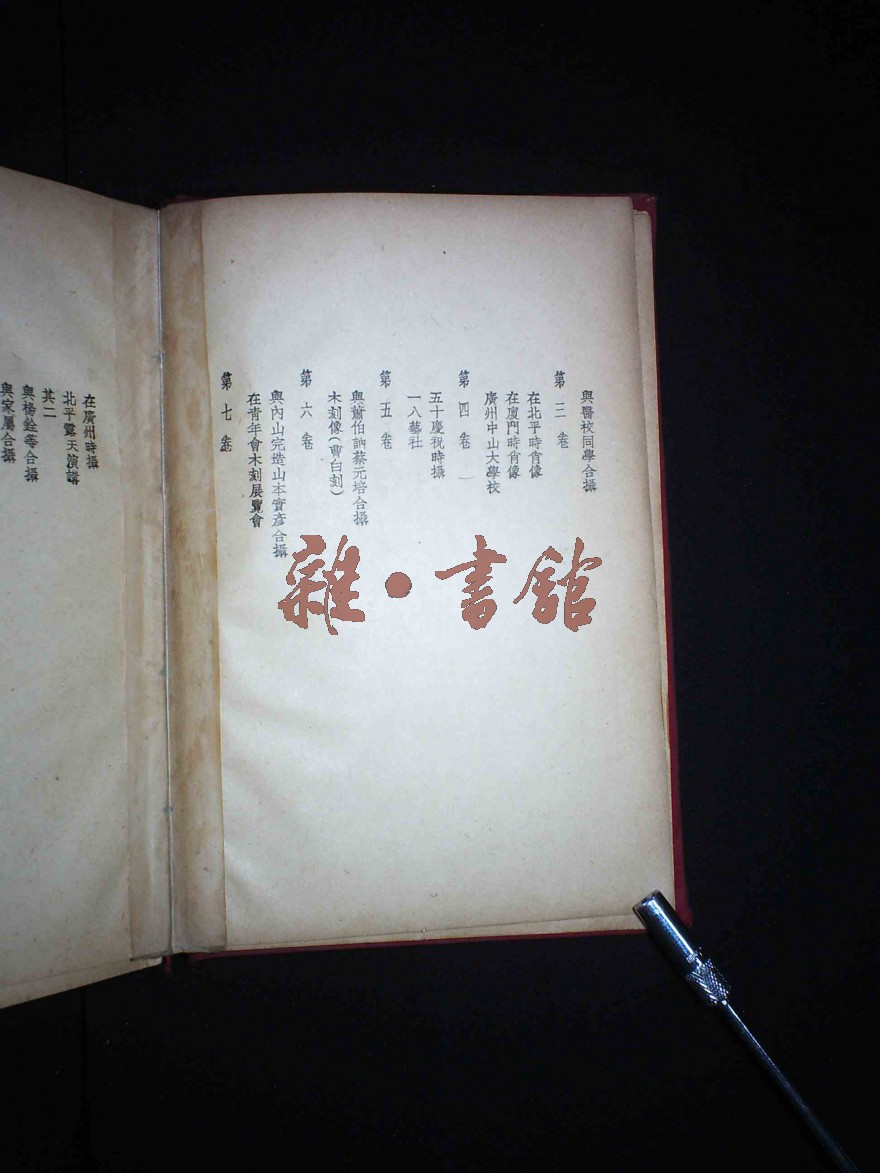 與醫校同學合攝
第三卷
在北平時肖像
在廈門時肖像
廣州中山大學校
第四卷
五十慶祝時攝
一八藝社
第五卷
與蕭伯訥蔡元培合攝
木刻像(曹白刻)
第六卷
與內山完造山本實彥合攝
在青年會木刻展覽會
第七卷
在廣州時攝
北平露天演講
其二
與楊銓等合攝
與家屬合攝
雜·書館